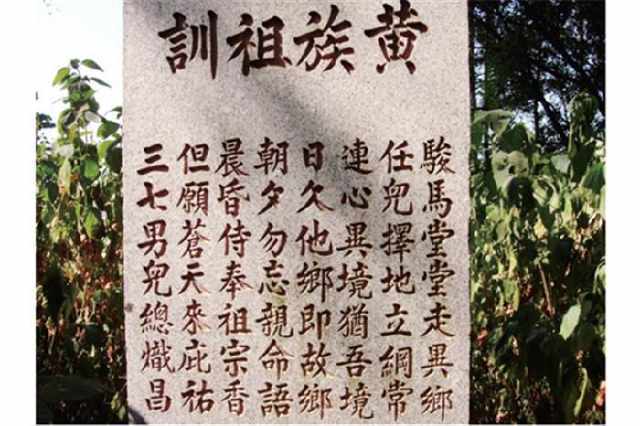 黄族祖訓
駿馬堂堂走異鄉
任兒擇地立綱常
連心異境猶吾境
日久他鄉即故鄉
朝夕勿忘親命語
晨昏侍奉祖宗香
但願蒼天來庇祐
三七男兒總熾昌